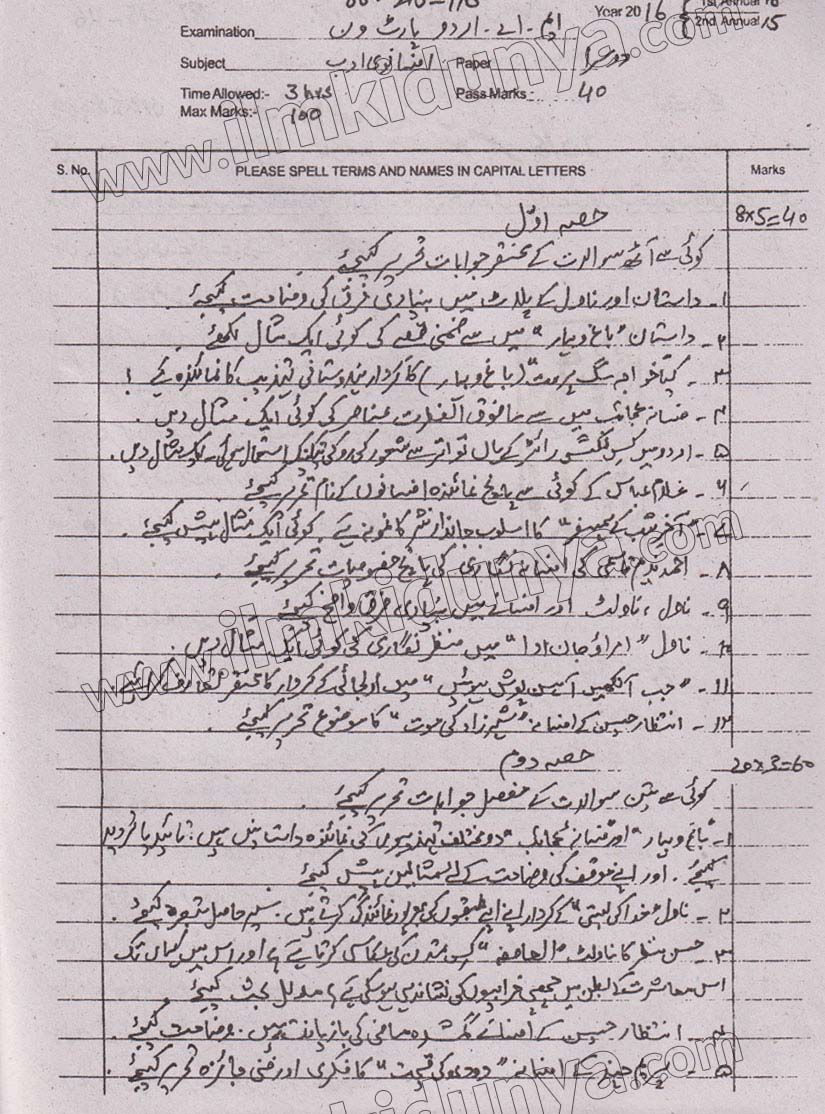 1st Annual
Year 2016 2nd Annual 15
Examination ایم۔اے۔ اردو پارٹ ون
Subject افسانوی ادب Paper دوسرا
Time Allowed:- 3 hrs Pass Marks:- 40
Max Marks:- 100
S. No. PLEASE SPELL TERMS AND NAMES IN CAPITAL LETTERS Marks
حصہ اوّل 8x5=40
کوئی سے آٹھ سوالات کے مختصر جوابات تحریر کیجئے
۱۔ داستان اور ناول کے پلاٹ میں بنیادی فرق کی وضاحت کیجئے۔
۲۔ داستان "باغ و بہار" میں سے ضمنی قصے کی کوئی ایک مثال لکھئے۔
۳۔ کیا خواجہ سگ پرست (باغ و بہار) کا کردار ہندوستانی تہذیب کا نمائندہ ہے؟
۴۔ فسانہ عجائب میں سے مافوق الفطرت عناصر کی کوئی ایک مثال دیں۔
۵۔ اردو میں کس فکشن رائٹر کے ہاں تواتر سے شعور کی رو کی تکنیک استعمال ہوئی۔ ایک مثال دیں۔
۶۔ غلام عباس کے کوئی سے پانچ نمائندہ افسانوں کے نام تحریر کیجئے۔
۷۔ "آخرِ شب کے ہمسفر" کا اسلوب جاندار نثر کا نمونہ ہے۔ کوئی ایک مثال پیش کیجئے۔
۸۔ احمد ندیم قاسمی کی افسانہ نگاری کی پانچ خصوصیات تحریر کیجئے۔
۹۔ ناول، ناولٹ اور افسانے میں بنیادی فرق واضح کیجئے
۱۰۔ ناول "امراؤ جان ادا" میں منظر نگاری کی کوئی ایک مثال دیں۔
۱۱۔ "جب آنکھیں آہن پوش ہوئیں" میں اولجائی کے کردار کا مختصر تعارف
۱۲۔ انتظار حسین کے افسانے "شہرزاد کی موت" کا موضوع تحریر کیجئے۔
حصہ دوم 20x3=60
کوئی سے تین سوالات کے مفصل جوابات تحریر کیجئے۔
۱۔ "باغ و بہار" اور "فسانہ عجائب" دو مختلف تہذیبوں کی نمائندہ داستانیں ہیں؛ تائید یا تردید
کیجئے۔ اور اپنے موقف کی وضاحت کے لئے مثالیں پیش کیجئے
۲۔ ناول "خدا کی بستی" کے کردار اپنے اپنے طبقوں کی بھرپور نمائندگی کرتے ہیں۔ سیر حاصل تبصرہ کیجئے۔
۳۔ حسن منظر کا ناولٹ "العاصفہ" کس تمدن کی عکاسی کرتا ہے؟ اور اس میں کہاں تک
اس معاشرت کے بطن میں چھپی خرابیوں کی نشاندہی ہو سکی ہے؟ مدلل بحث کیجئے
۴۔ انتظار حسین کے افسانے گمشدہ ماضی کی بازیافت ہیں۔ وضاحت کیجئے۔
۵۔ پریم چند کے افسانے "دودھ کی قیمت" کا فکری اور فنی جائزہ تحریر کیجئے۔
www.ilmkidunya.com
www.ilmkidunya.com
www.ilmkidunya.com